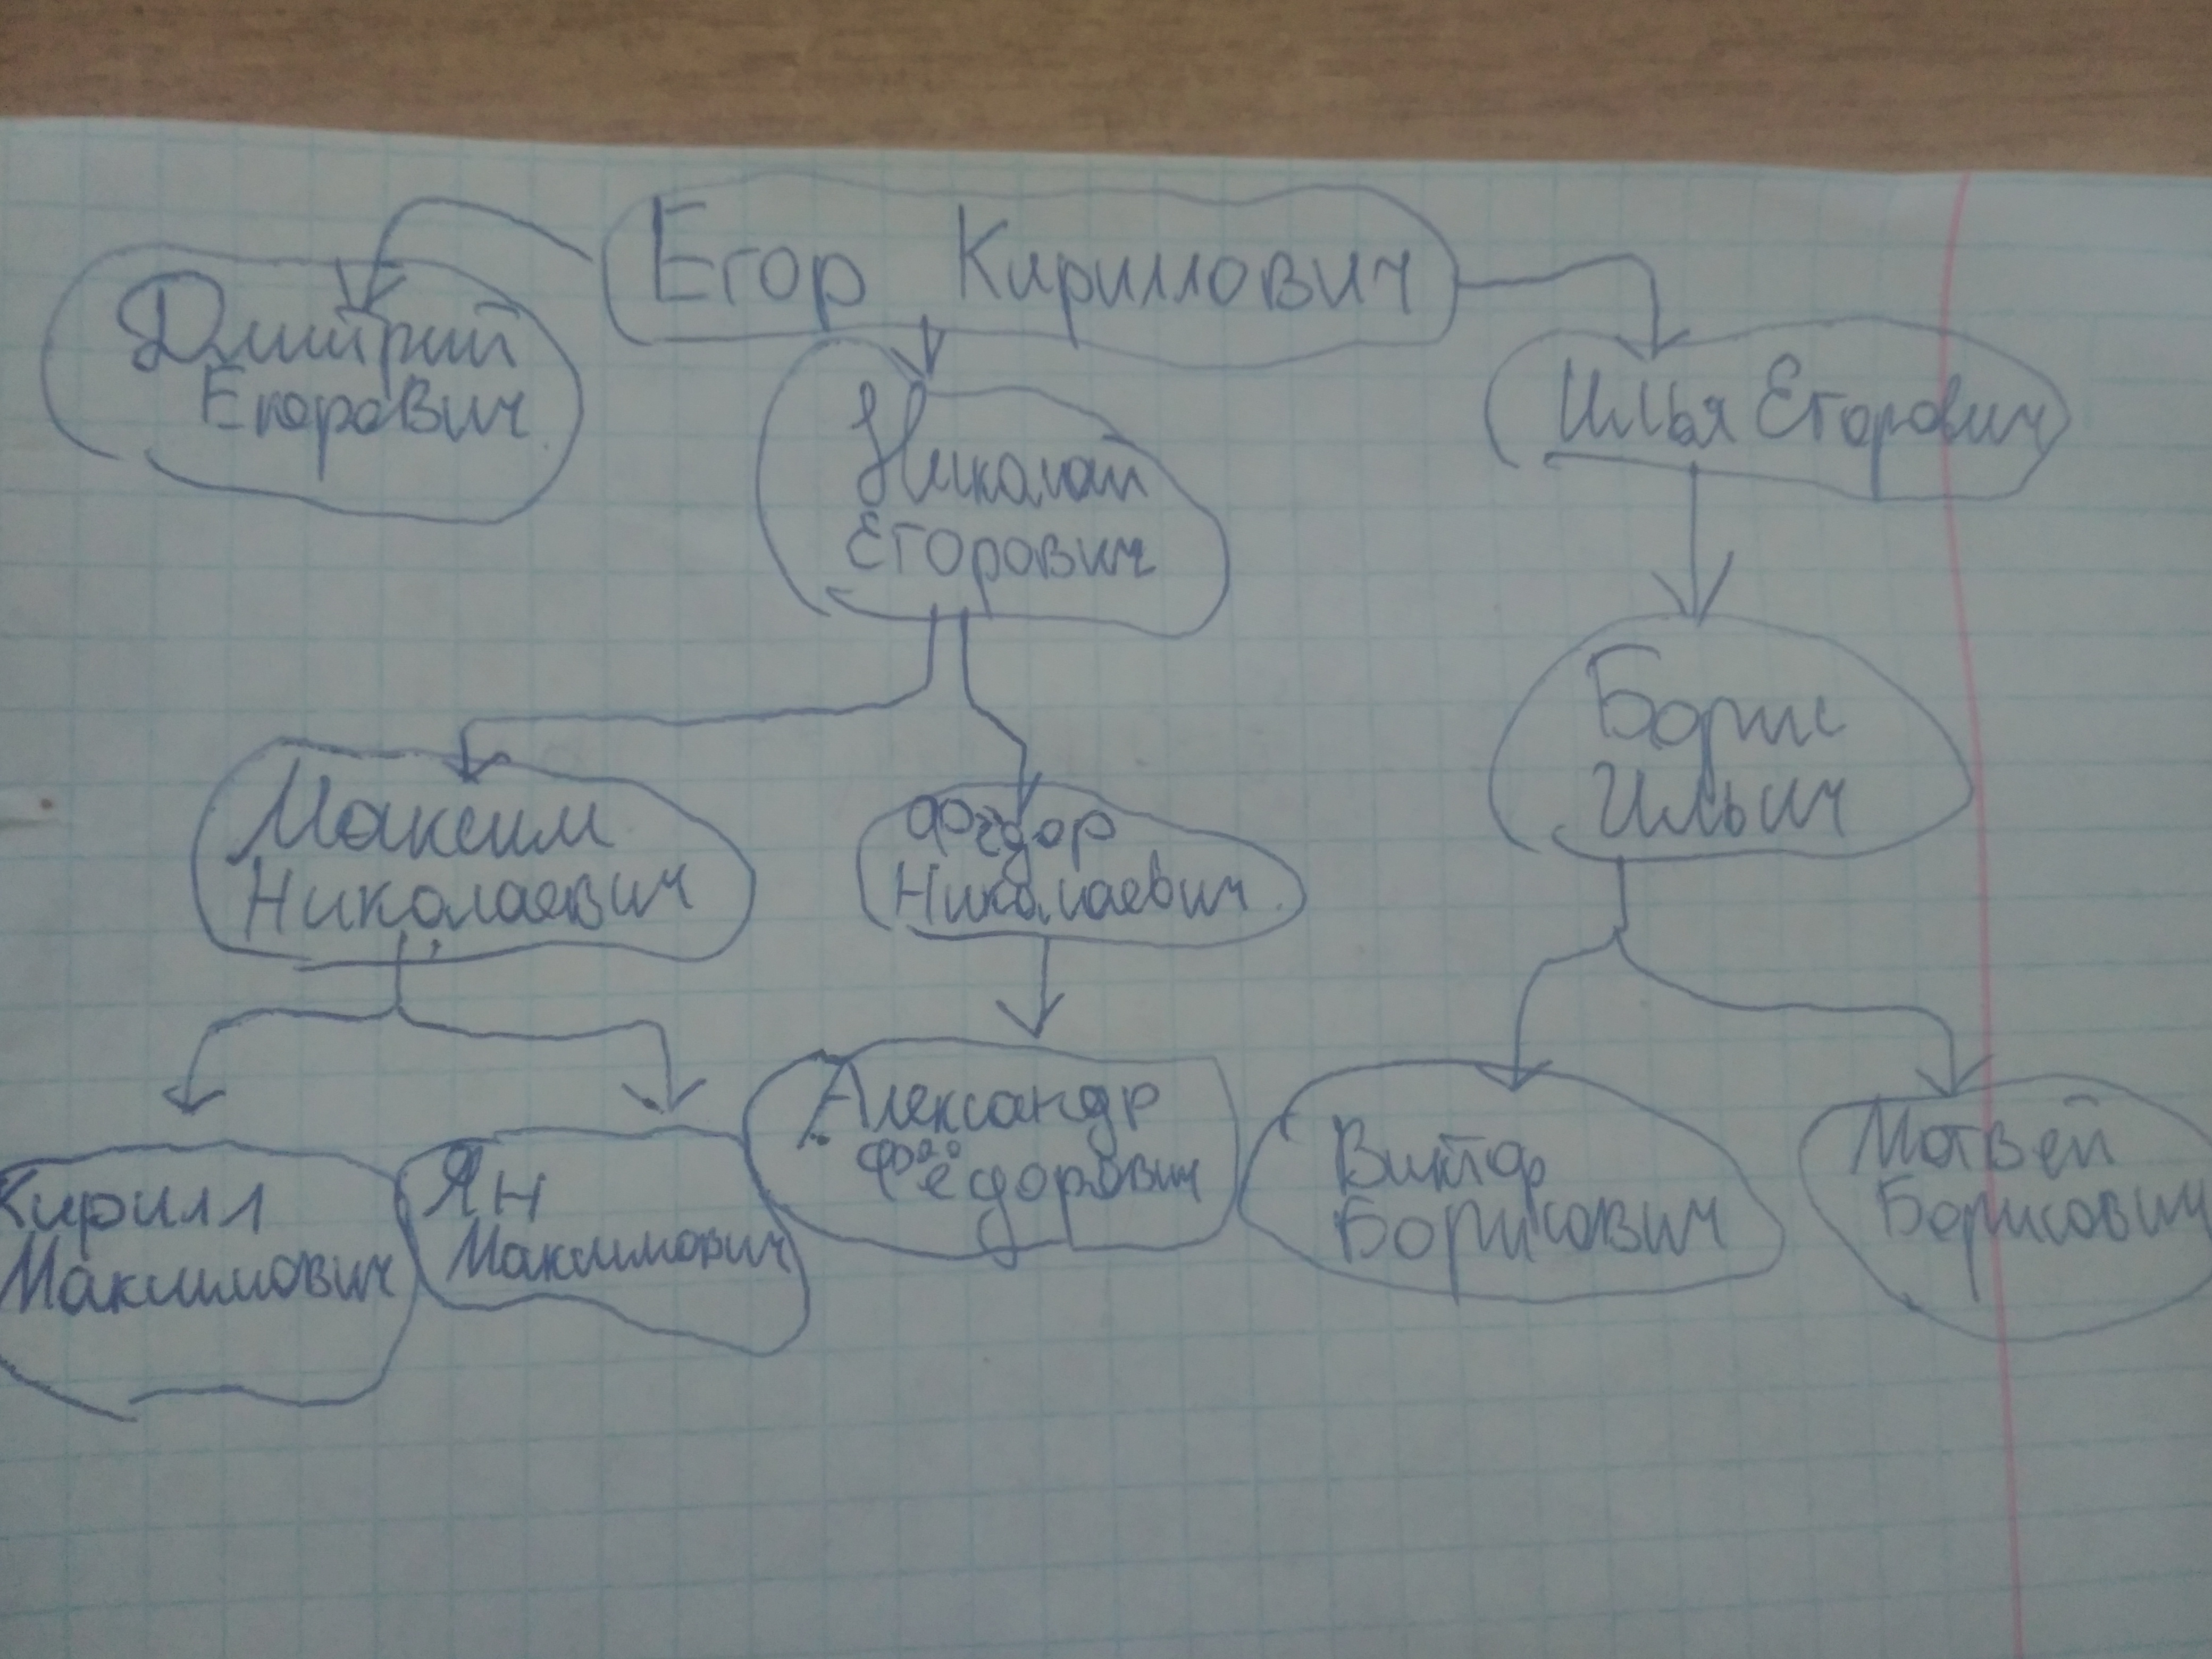 Егор Кириллович
Дмитрий
Егорович
Николай
Егорович
Илья Егорович
Борис
Ильич
Максим
Николаевич
Фёдор
Николаевич
Кирилл
Максимович
Ян
Максимович
Александр
Фёдорович
Виктор
Борисович
Матвей
Борисович